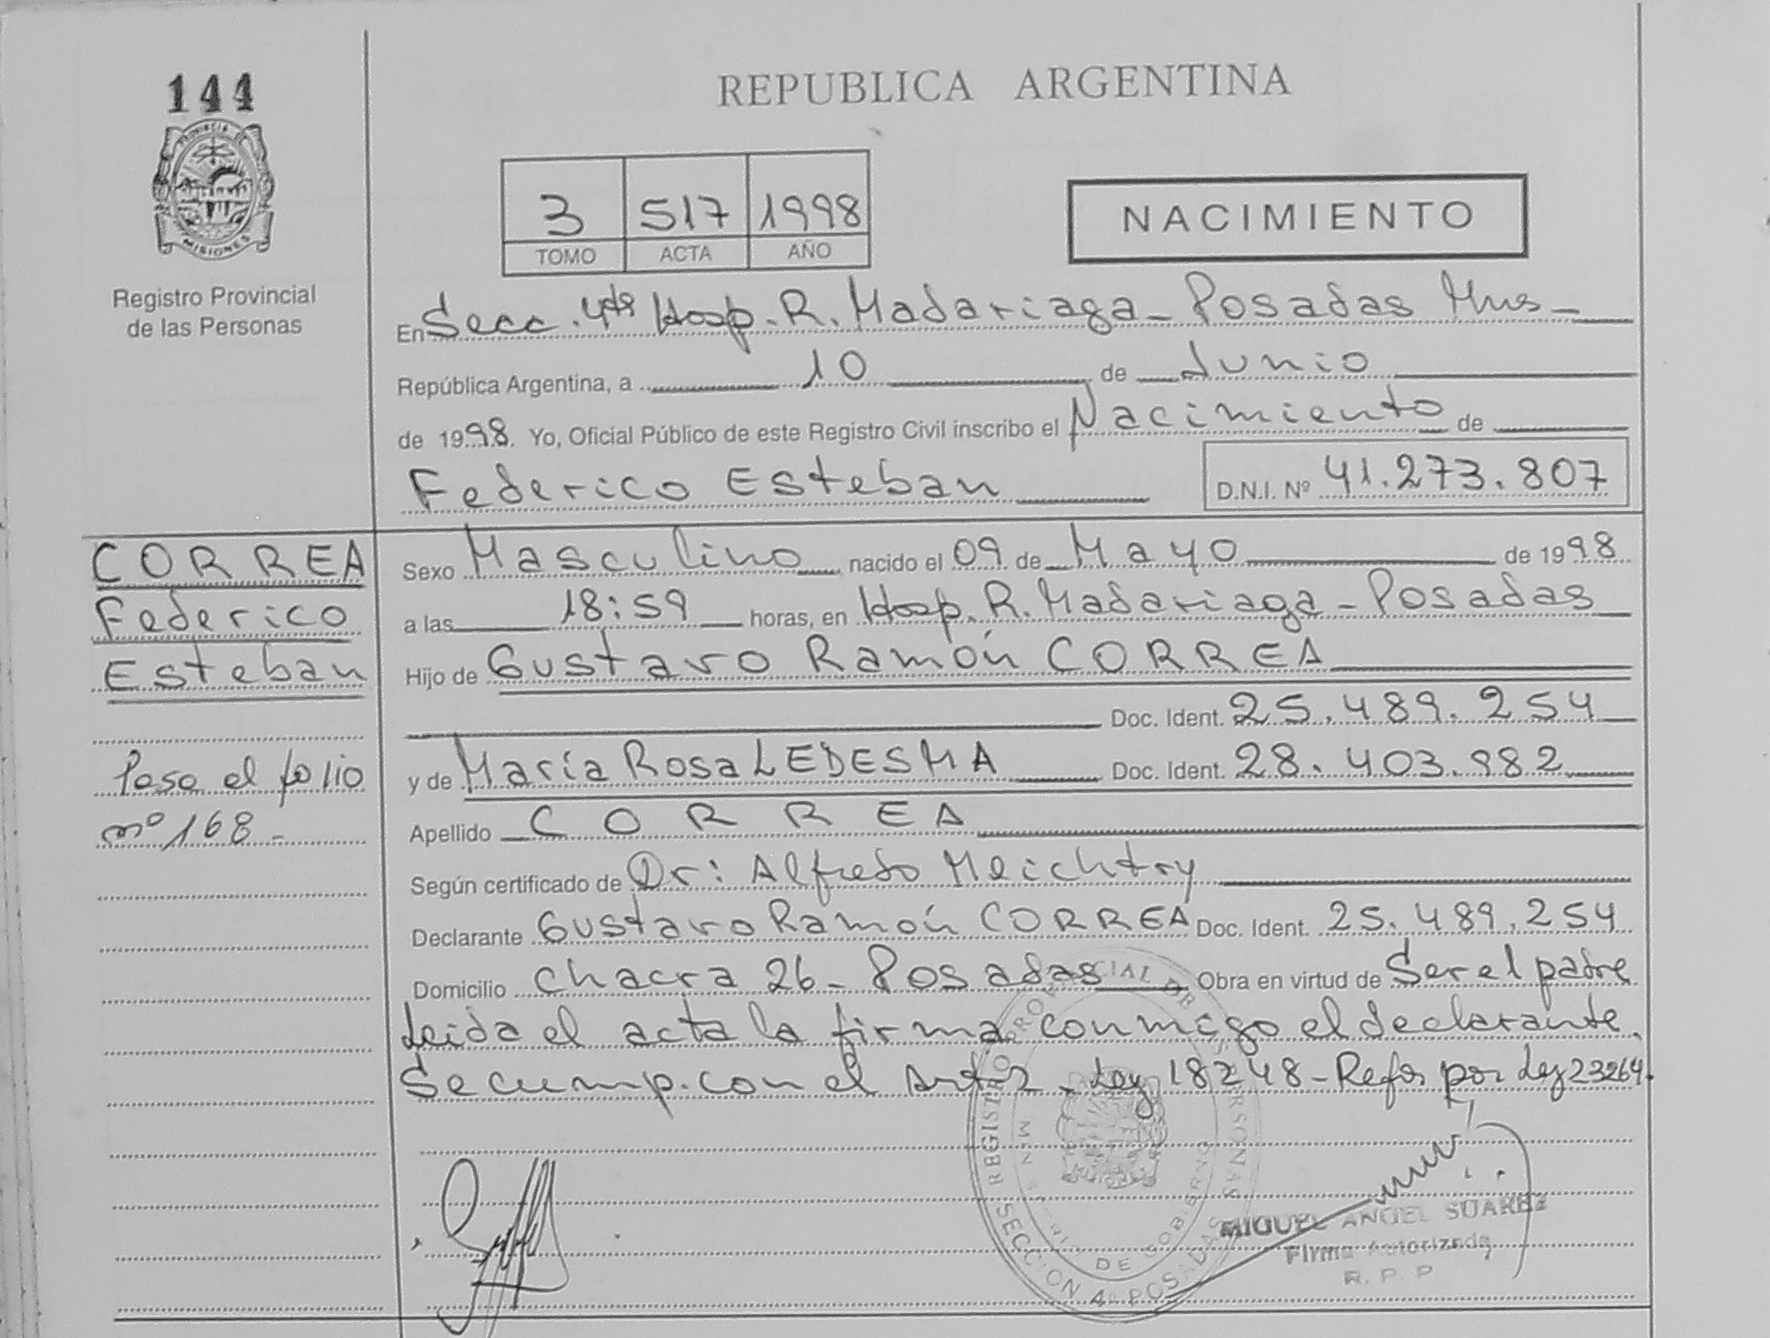 144
REPUBLICA ARGENTINA
PROVINCIA DE
MISIONES
Registro Provincial
de las Personas
3 517 1998
TOMO ACTA AÑO
NACIMIENTO
En Secc. 4ta Hosp. R. Madariaga - Posadas Mnes -
República Argentina, a 10 de Junio
de 1998. Yo, Oficial Público de este Registro Civil inscribo el Nacimiento de
Federico Esteban D.N.I. Nº 41.273.807
CORREA
Federico
Esteban
Pasa al folio
nº 168 -
Sexo Masculino nacido el 09 de Mayo de 1998
a las 18:59 horas, en Hosp. R. Madariaga - Posadas
Hijo de Gustavo Ramón CORREA
Doc. Ident. 25.489.254
y de María Rosa LEDESMA Doc. Ident. 28.403.982
Apellido CORREA
Según certificado de Dr: Alfredo Meichtry
Declarante Gustavo Ramón CORREA Doc. Ident. 25.489.254
Domicilio Chacra 26 - Posadas Obra en virtud de Ser el padre
Leida el acta la firma conmigo el declarante.
Se cump. con el Art 2 - Ley 18248 - Refor por Ley 23264.
REGISTRO PROVINCIAL DE LAS PERSONAS
MINISTERIO DE GOBIERNO
SECCION 4a POSADAS
MIGUEL ANGEL SUAREZ
Firma Autorizada
R. P. P